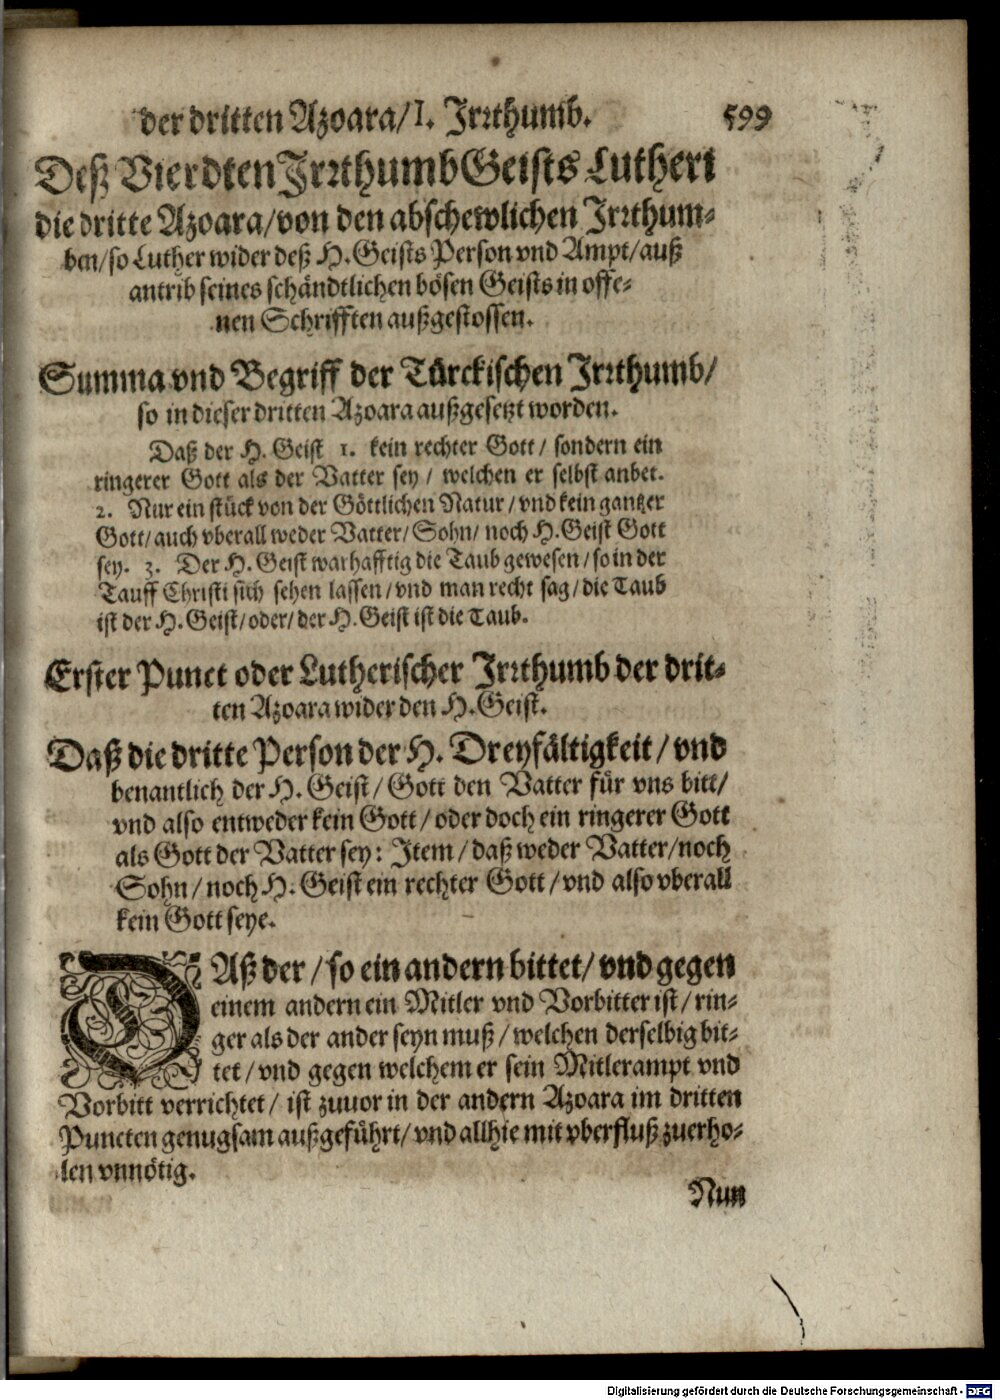 der dritten Azoara/ I. Irrthumb. 599
Deß Vierdten Irrthumb Geists Lutheri
die dritte Azoara/ von den abschewlichen Irrthum-
ben/ so Luther wider deß H. Geists Person vnd Ampt/ auß
antrib seines schändtlichen bösen Geists in offe-
nen Schrifften außgestossen.
Summa vnd Begriff der Türckischen Irrthumb/
so in dieser dritten Azoara außgesetzt worden.
Daß der H. Geist 1. kein rechter Gott/ sondern ein
ringerer Gott als der Vatter sey/ welchen er selbst anbet.
2. Nur ein stück von der Göttlichen Natur/ vnd kein gantzer
Gott/ auch vberall weder Vatter/ Sohn/ noch H. Geist Gott
sey. 3. Der H. Geist warhafftig die Taub gewesen/ so in der
Tauff Christi sich sehen lassen/ vnd man recht sag/ die Taub
ist der H. Geist/ oder/ der H. Geist ist die Taub.
Erster Punct oder Lutherischer Irrthumb der drit-
ten Azoara wider den H. Geist.
Daß die dritte Person der H. Dreyfältigkeit/ vnd
benantlich der H. Geist/ Gott den Vatter für vns bitt/
vnd also entweder kein Gott/ oder doch ein ringerer Gott
als Gott der Vatter sey: Item/ daß weder Vatter/ noch
Sohn/ noch H. Geist ein rechter Gott/ vnd also vberall
kein Gott seye.
DAß der/ so ein andern bittet/ vnd gegen
einem andern ein Mitler vnd Vorbitter ist/ rin-
ger als der ander seyn muß/ welchen derselbig bit-
tet/ vnd gegen welchem er sein Mitlerampt vnd
Vorbitt verrichtet/ ist zuuor in der andern Azoara im dritten
Puncten genugsam außgeführt/ vnd allhie mit vberfluß zuerho-
len vnnötig.
Nun
Digitalisierung gefördert durch die Deutsche Forschungsgemeinschaft - DFG